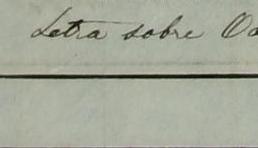 Letra sobre